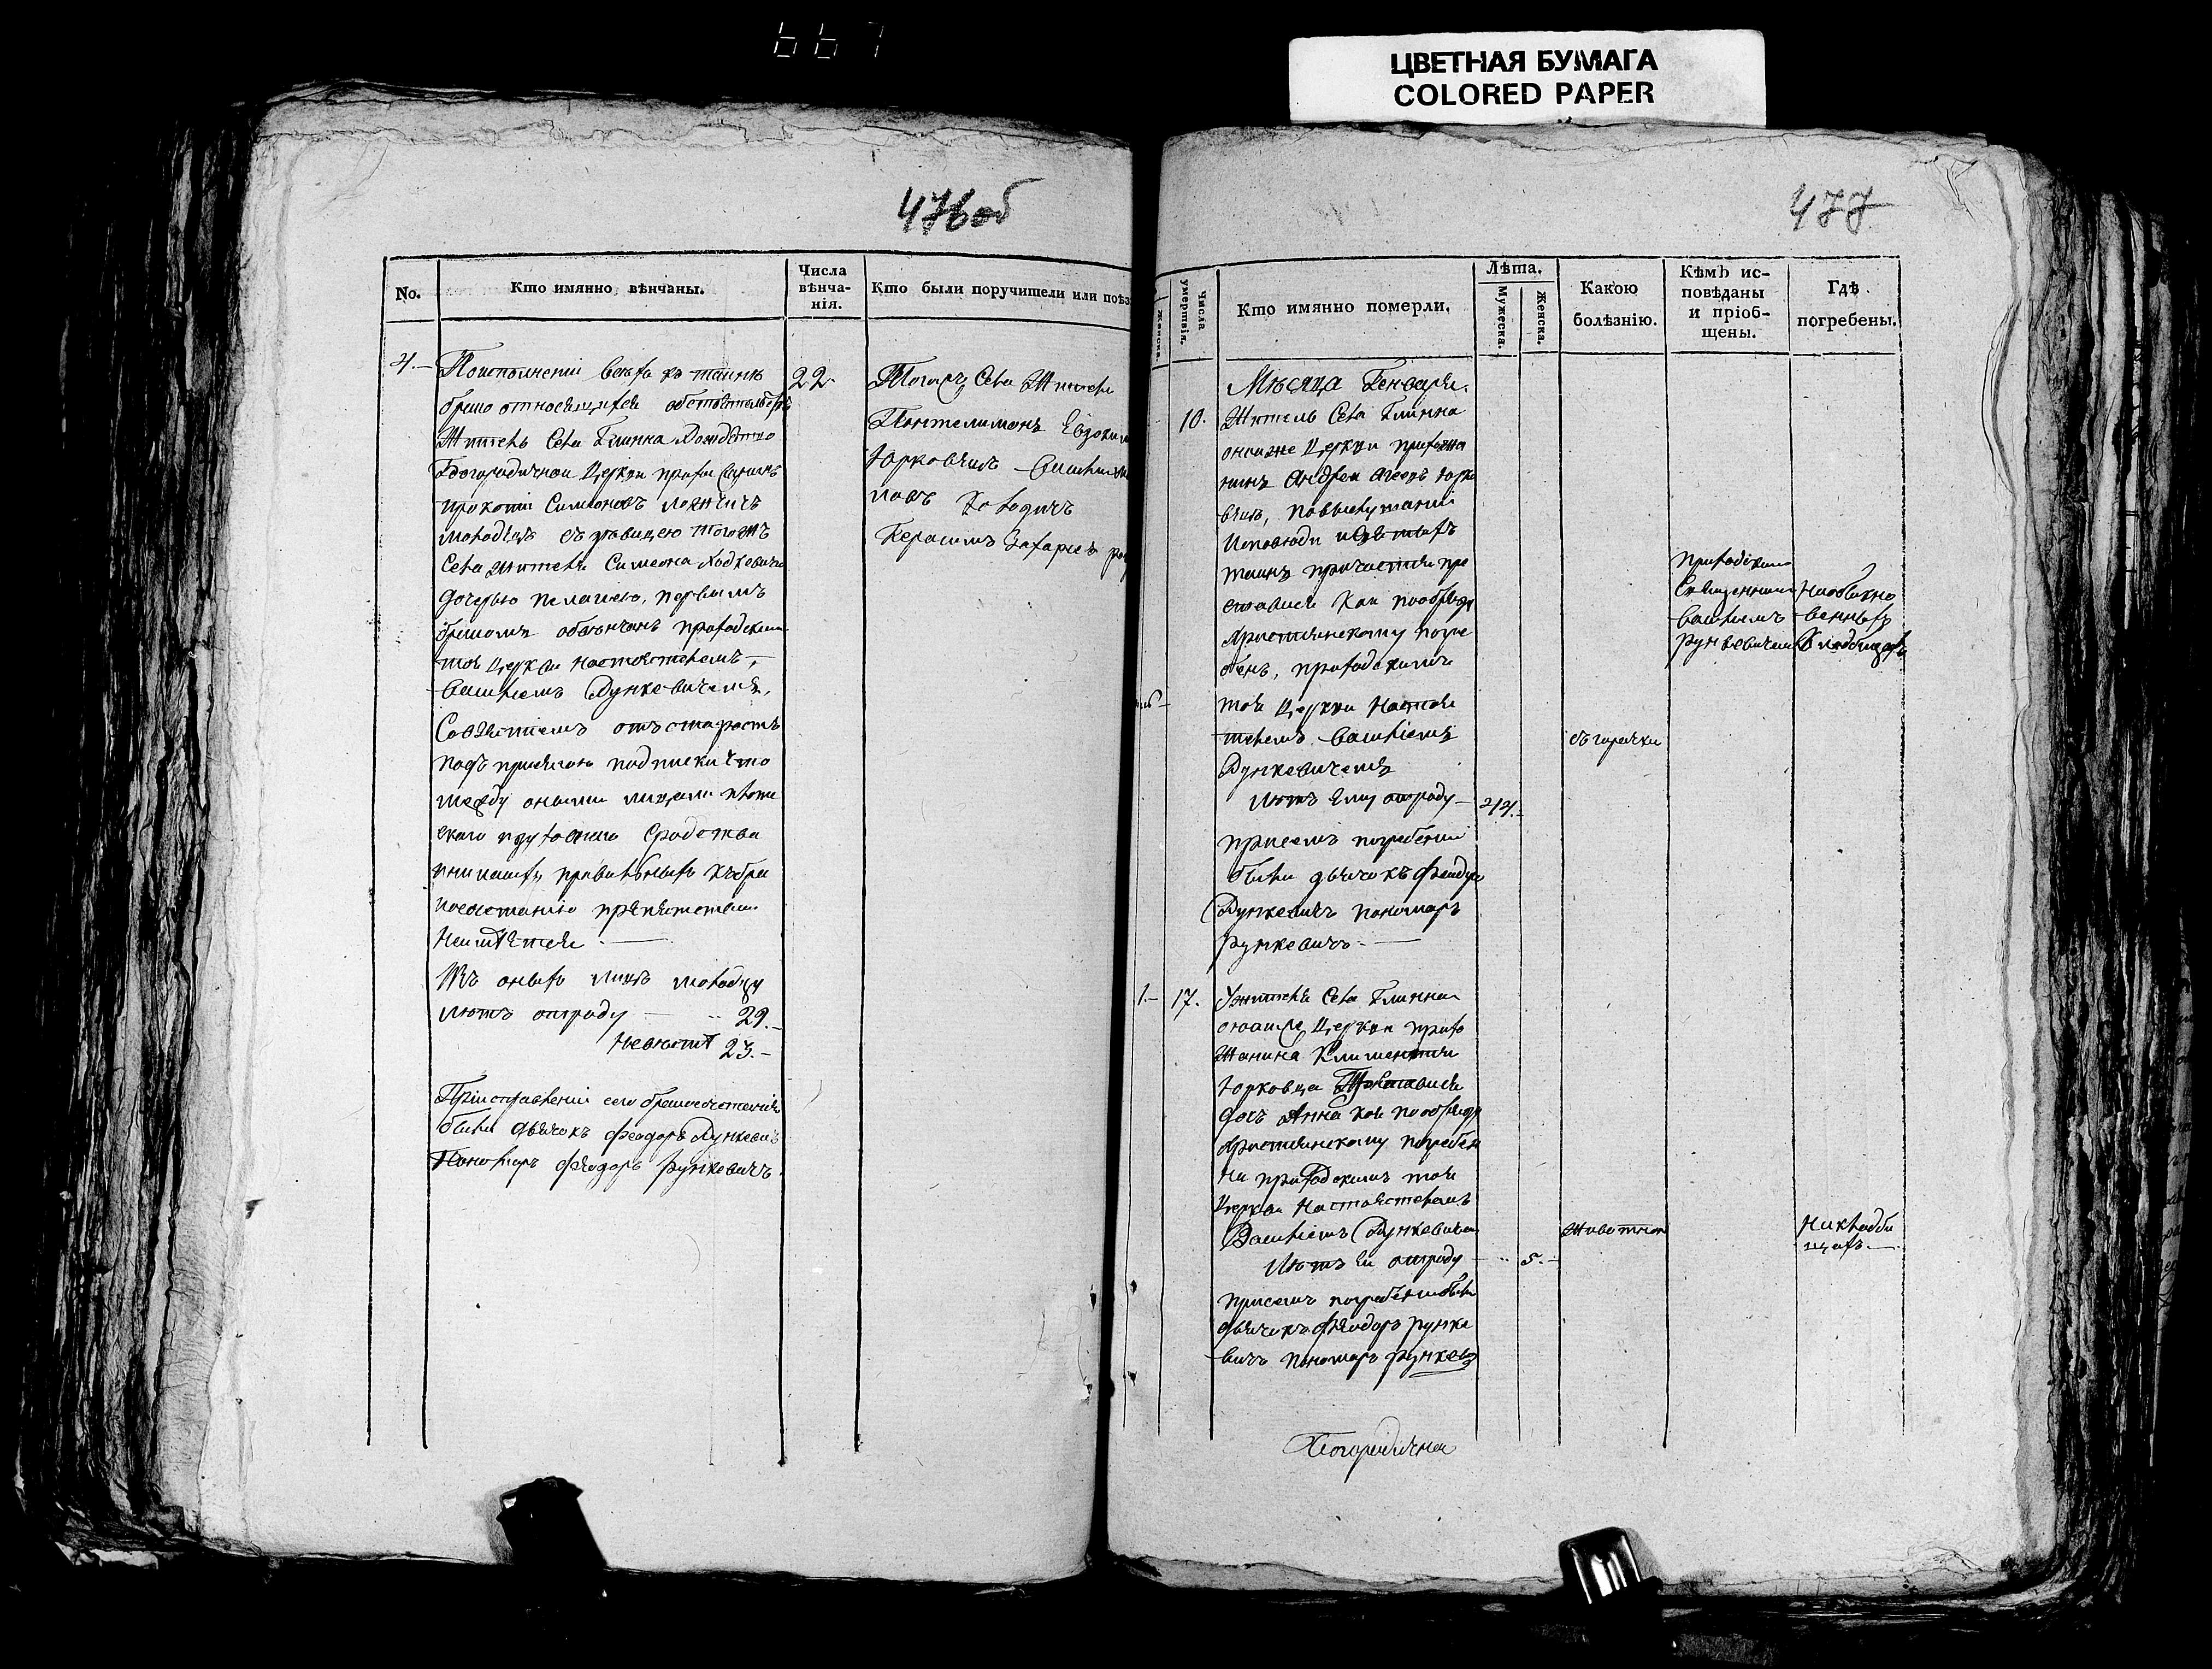 667
ЦВЕТНАЯ БУМАГА
COLORED PAPER
476 об
No.
Кто имянно вѣнчаны.
Числа вѣнча-нія.
Кто были поручители или поѣз
4.
По исполненіи всѣхъ къ таинѣ
браша относящихся обстоятельствъ
Житель Села Глинна Рождество
Богородичной Церкви прихожанинъ
прокопій Симіоновъ
молодецъ съ дѣвицею тогожъ
Села жителя Симеона Ходкевича
дочерью пелагією, первымъ
бракомъ обвѣнчанъ приходскимъ
той Церкви настоятелемъ
Василіемъ Рункевичемъ,
Со взятіемъ отъ старостъ
подъ присягою подписки что
между оными лицами плоти
скаго и духовнаго сродства
и никакихъ правильныхъ къ бра
косочетанію препятствій
не имѣется
Изъ оныхъ лицъ молодцу
лѣтъ отроду 29.
Невѣстѣ 23.
При исправленіи сего бракосочетанія
были дьячокъ Феодоръ Рункевичъ
Пономарь Феодоръ Рункевичъ.
22.
Тогожъ Села Жители
Пантелимонъ Евдоким
Юрковецъ Василій
Хододичъ
Герасимъ Захаріевъ
477
Женска.
Числа умертвія.
Кто имянно померли.
Лѣта.
Мужеска.
Женска.
Какою болѣзнію.
Кѣмъ ис-повѣданы и пріоб-щены.
Гдѣ погребены.
Мѣсяца Генваря.
10.
Житель Села Глинна
оной же Церкви прихожа
нинъ Андрей Агеевъ Юрко
вецъ, по выслушаніи
Исповѣди и Святыхъ
таинъ причастія пре
ставися кой по обряду
христіянскому погре
бенъ, приходскимъ
той Церкви настоя
телемъ Василіемъ
Рункевичемъ
лѣтъ Ему отроду
при семъ погребеніи
были дьячокъ Феодоръ
Рункевичъ пономарь
Рункевичъ
съ горячки
Приходскимъ
Священникомъ
Василіемъ
Рункевичемъ
На обыкно
венныхъ
Кладбищахъ
1.
17.
У жителя Села Глинна
оной же Церкви прихо
жанина Климентія
Юрковца Преставися
дочь Анна коя по обряду
христіянскому погребен
на приходскимъ той
Церкви Настоятелемъ
Василіемъ Рункевичем
Лѣтъ Ей отроду
5.
Животной
На кладби
щахъ
при семъ погребеніи были
дьячокъ Феодоръ Рунке
вичъ пономарь Рункевичъ